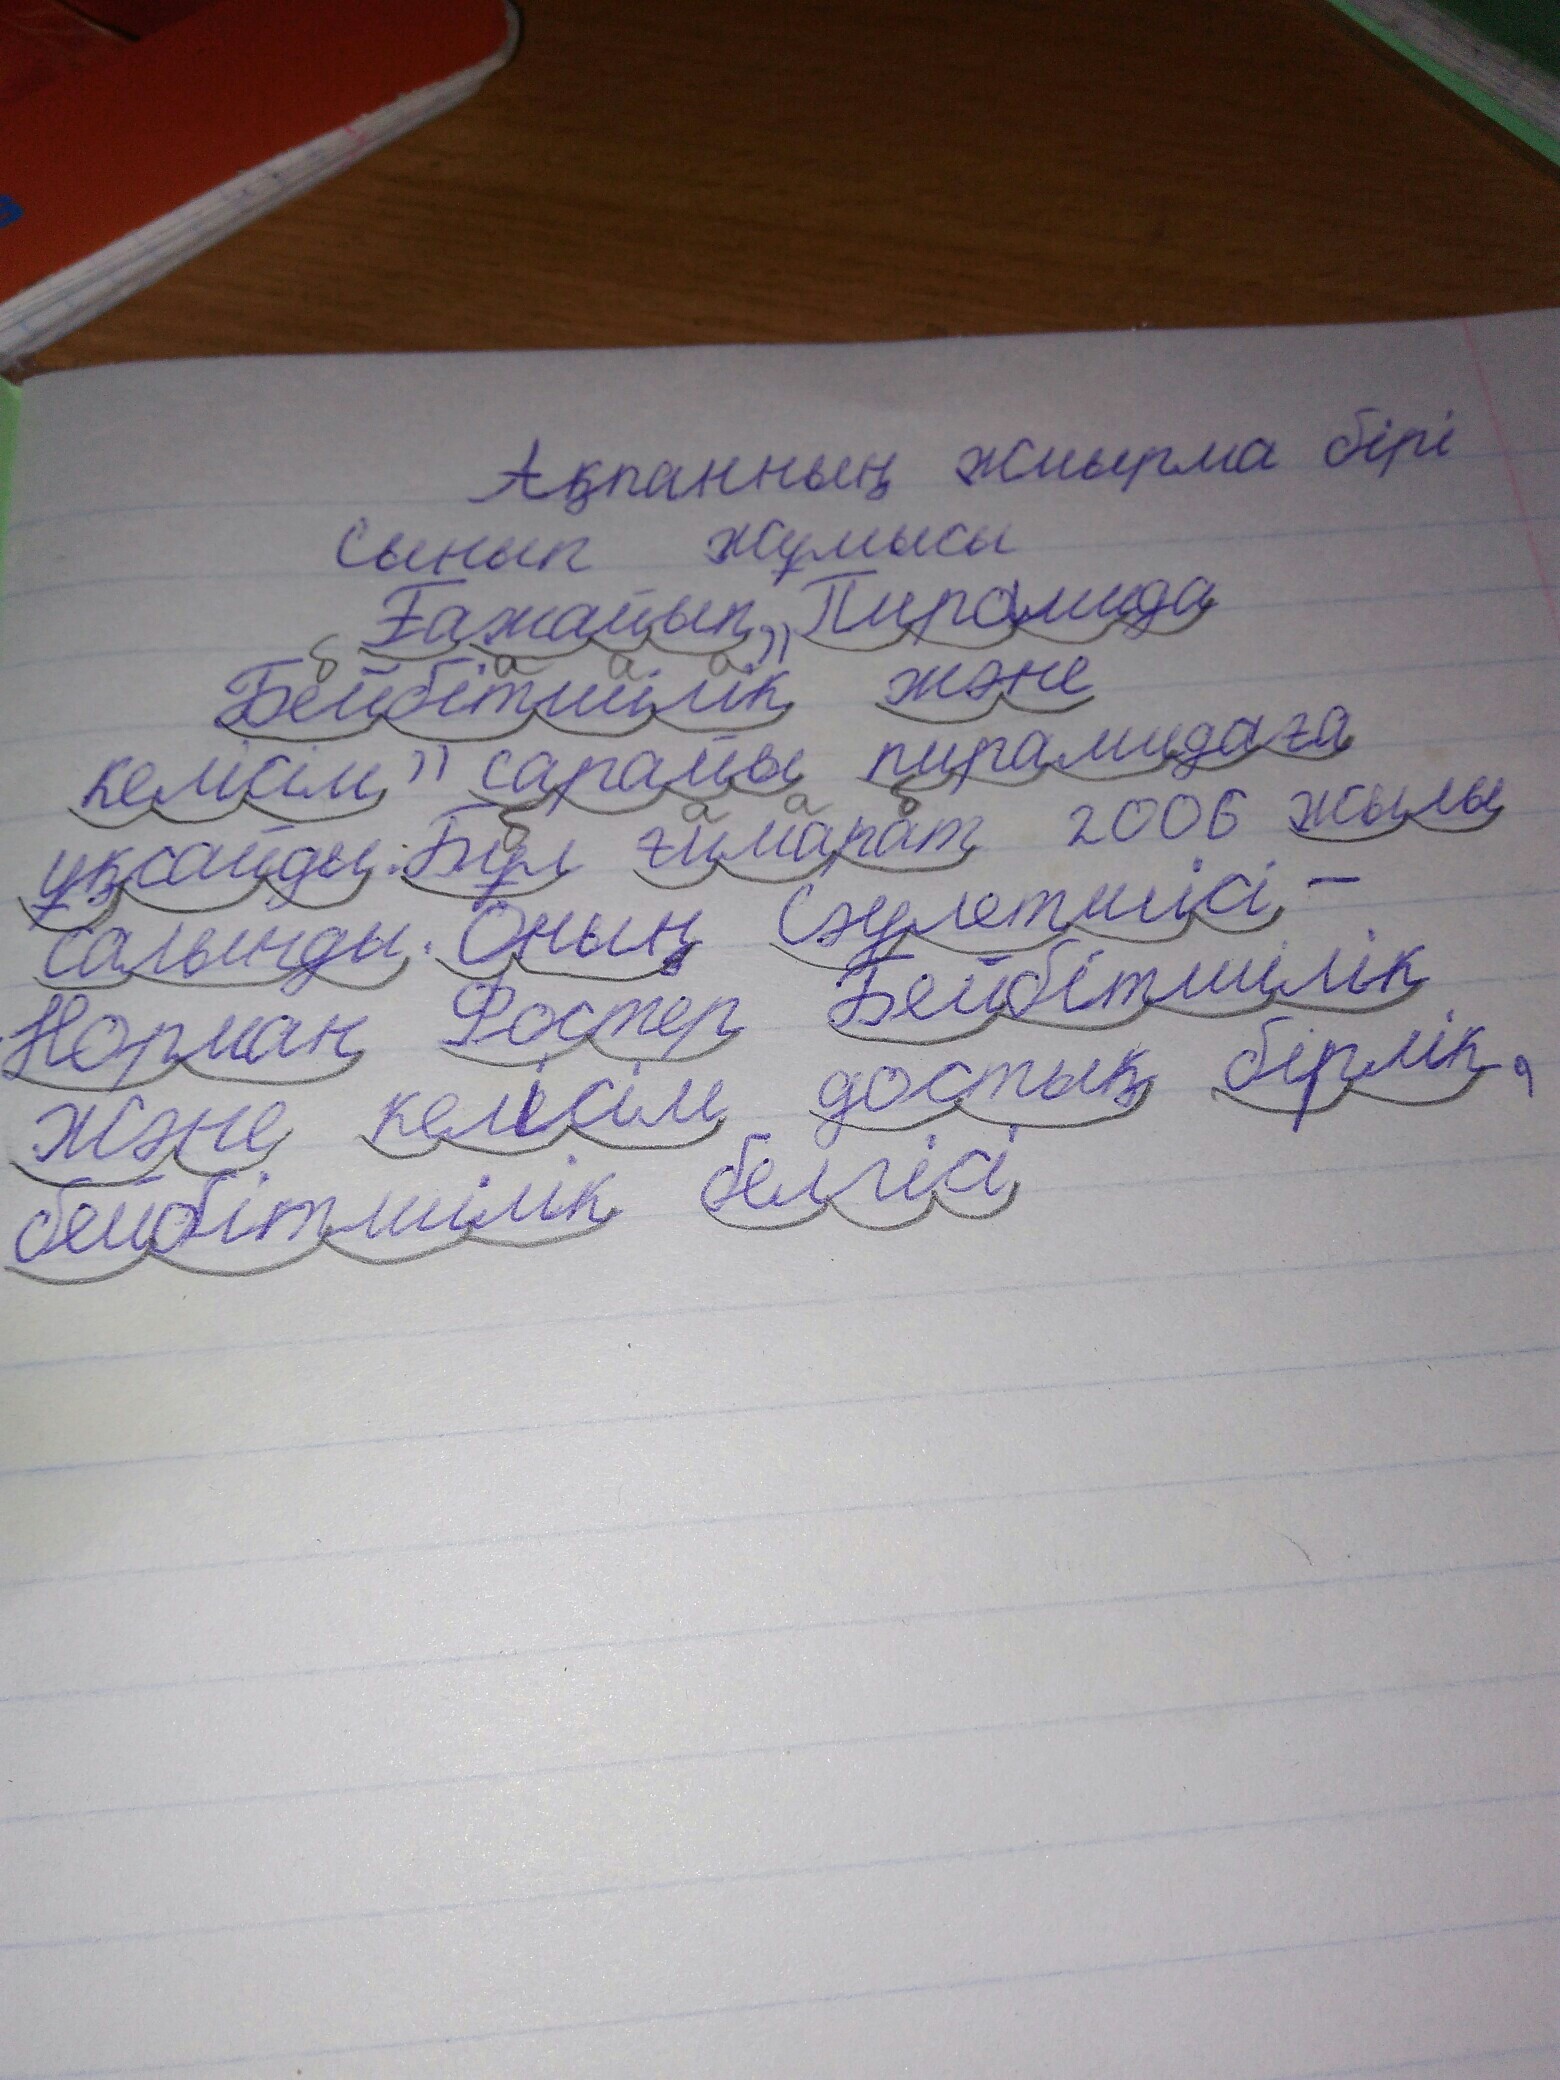 Ақпанның жиырма бірі
Сынып жұмысы
Ғажайып Пирамида
"Бейбітшілік және
келісім" сарайы пирамидаға
ұқсайды. Бұл ғимарат 2006 жылы
салынды. Оның Сәулетшісі -
Норман Фостер Бейбітшілік
және келісім достық бірлік,
бейбітшілік белгісі